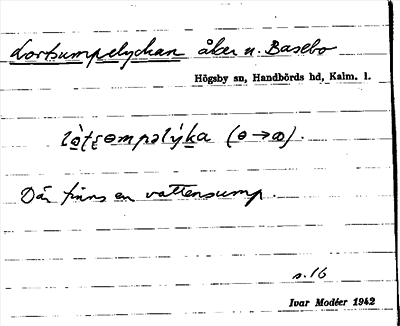 Lortsumpelyckan åker u. Basebo
Högsby sn, Handbörds hd, Kalm. l.
(ɵ→ꝏ).
Där finns en vattensump.
s. 16
Ivar Modéer 1942